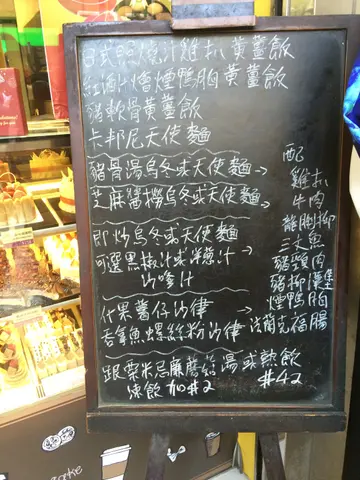 日式照燒汁雞扒黃薑飯
紅酒汁燴煙鴨胸黃薑飯
豬軟骨黃薑飯
卡邦尼天使麵
豬骨湯烏冬或天使麵→
芝麻醬撈烏冬或天使麵→
即炒烏冬或天使麵
可選黑椒汁或
沙嗲汁
配
雞扒
牛肉
豬頸肉
豬柳漢堡
煙鴨胸
法蘭克福腸
什果薯仔沙律
吞拿魚螺絲粉沙律
跟粟米忌廉蘑菇湯或熱飲
凍飲加$2
$42